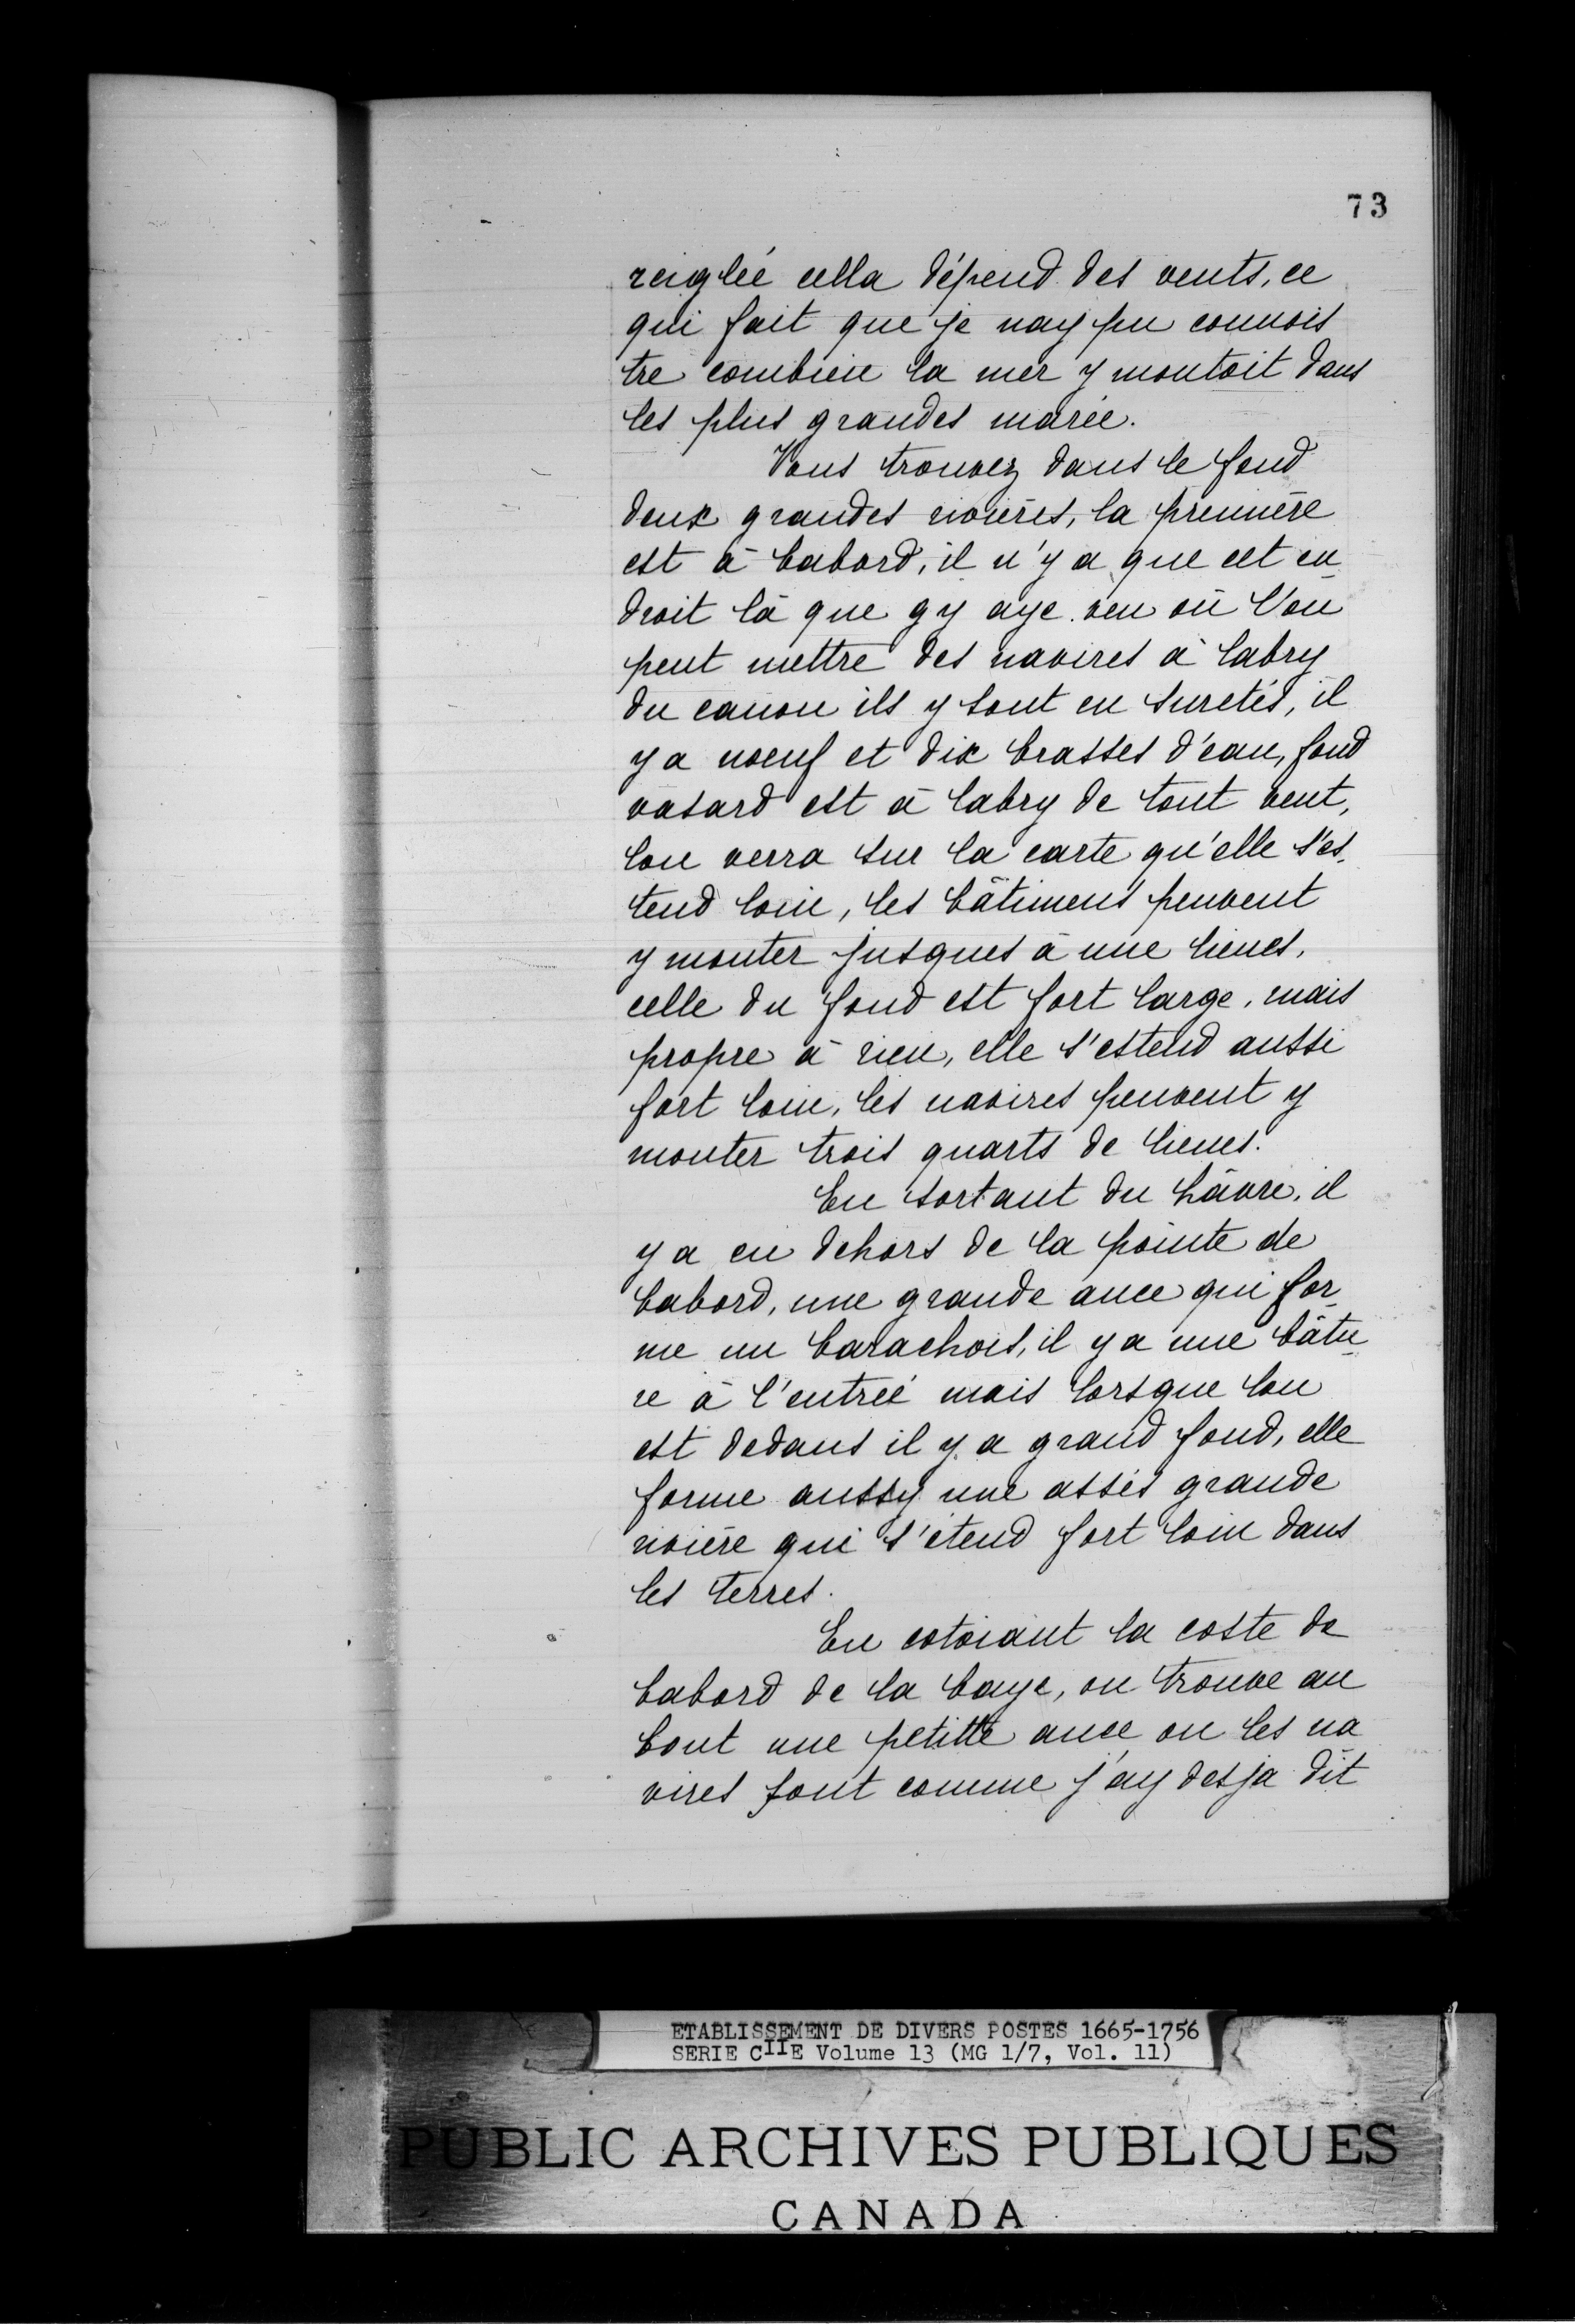 73
reiglée cella dépend des vents, ce
qui fait que je nay pu connois
tre combien la mer y montoit dans
les plus grandes marée.
Vous trouvez dans le fond
deux grandes rivières, la première
est à babord, il n'y a que cet en_
droit là que gy aye veu où l'on
peut mettre des navires à labry
du canon ils y sont en suretés, il
y a noeuf et dix brasses d'eau, fond
vasard est à labry de tout vent,
lon verra sur la carte qu'elle s'es_
tend loin, les bâtimens peuvent
y monter jusques à une lieues,
celle du fond est fort large, mais
propre à rien, elle s'estend aussi
fort loin, les navires peuvent y
monter trois quarts de lieues.
En sortant du hâvre, il
y a en dehors de la pointe de
babord, une grande ance qui for_
me un barachois, il y a une bâtu_
re à l'entrée mais lorsque lon
est dedans il y a grand fond, elle
forme aussy une assés grande
rivière qui s'étend fort loin dans
les terres.
En cotoiant la coste de
babord de la baye, on trouve au
bout une petitte ance ou les na
vires font comme j'ay desja dit
ETABLISSEMENT DE DIVERS POSTES 1665-1756
SERIE CIIE Volume 13 (MG 1/7, Vol. 11)
PUBLIC ARCHIVES PUBLIQUES
CANADA